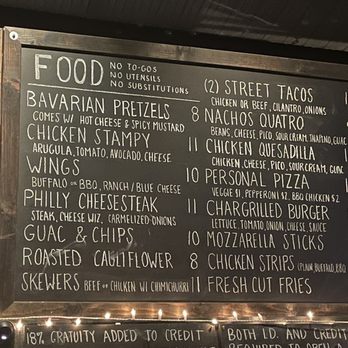 FOOD
NO TO-GOS
NO UTENSILS
NO SUBSTITUTIONS
BAVARIAN PRETZELS 8
COMES W/ HOT CHEESE & SPICY MUSTARD
CHICKEN STAMPY 11
ARUGULA, TOMATO, AVOCADO, CHEESE
WINGS 10
BUFFALO OR BBQ, RANCH / BLUE CHEESE
PHILLY CHEESESTEAK 11
STEAK, CHEESE WIZ, CARMELIZED ONIONS
GUAC & CHIPS 10
ROASTED CAULIFLOWER 8
SKEWERS BEEF OR CHICKEN W/ CHIMICHURRI 11
(2) STREET TACOS
CHICKEN OR BEEF, CILANTRO, ONIONS
NACHOS QUATRO
BEANS, CHEESE, PICO, SOUR CREAM, JALAPENO, GUAC
CHICKEN QUESADILLA
CHICKEN, CHEESE, PICO, SOUR CREAM, GUAC
PERSONAL PIZZA
VEGGIE $1, PEPPERONI $2, BBQ CHICKEN $2
CHARGRILLED BURGER
LETTUCE, TOMATO, ONION, CHEESE, SAUCE
MOZZARELLA STICKS
CHICKEN STRIPS (PLAIN, BUFFALO, BBQ
FRESH CUT FRIES
18% GRATUITY ADDED TO CREDIT
BOTH I.D. AND CREDIT
REQUIRED TO OPEN A